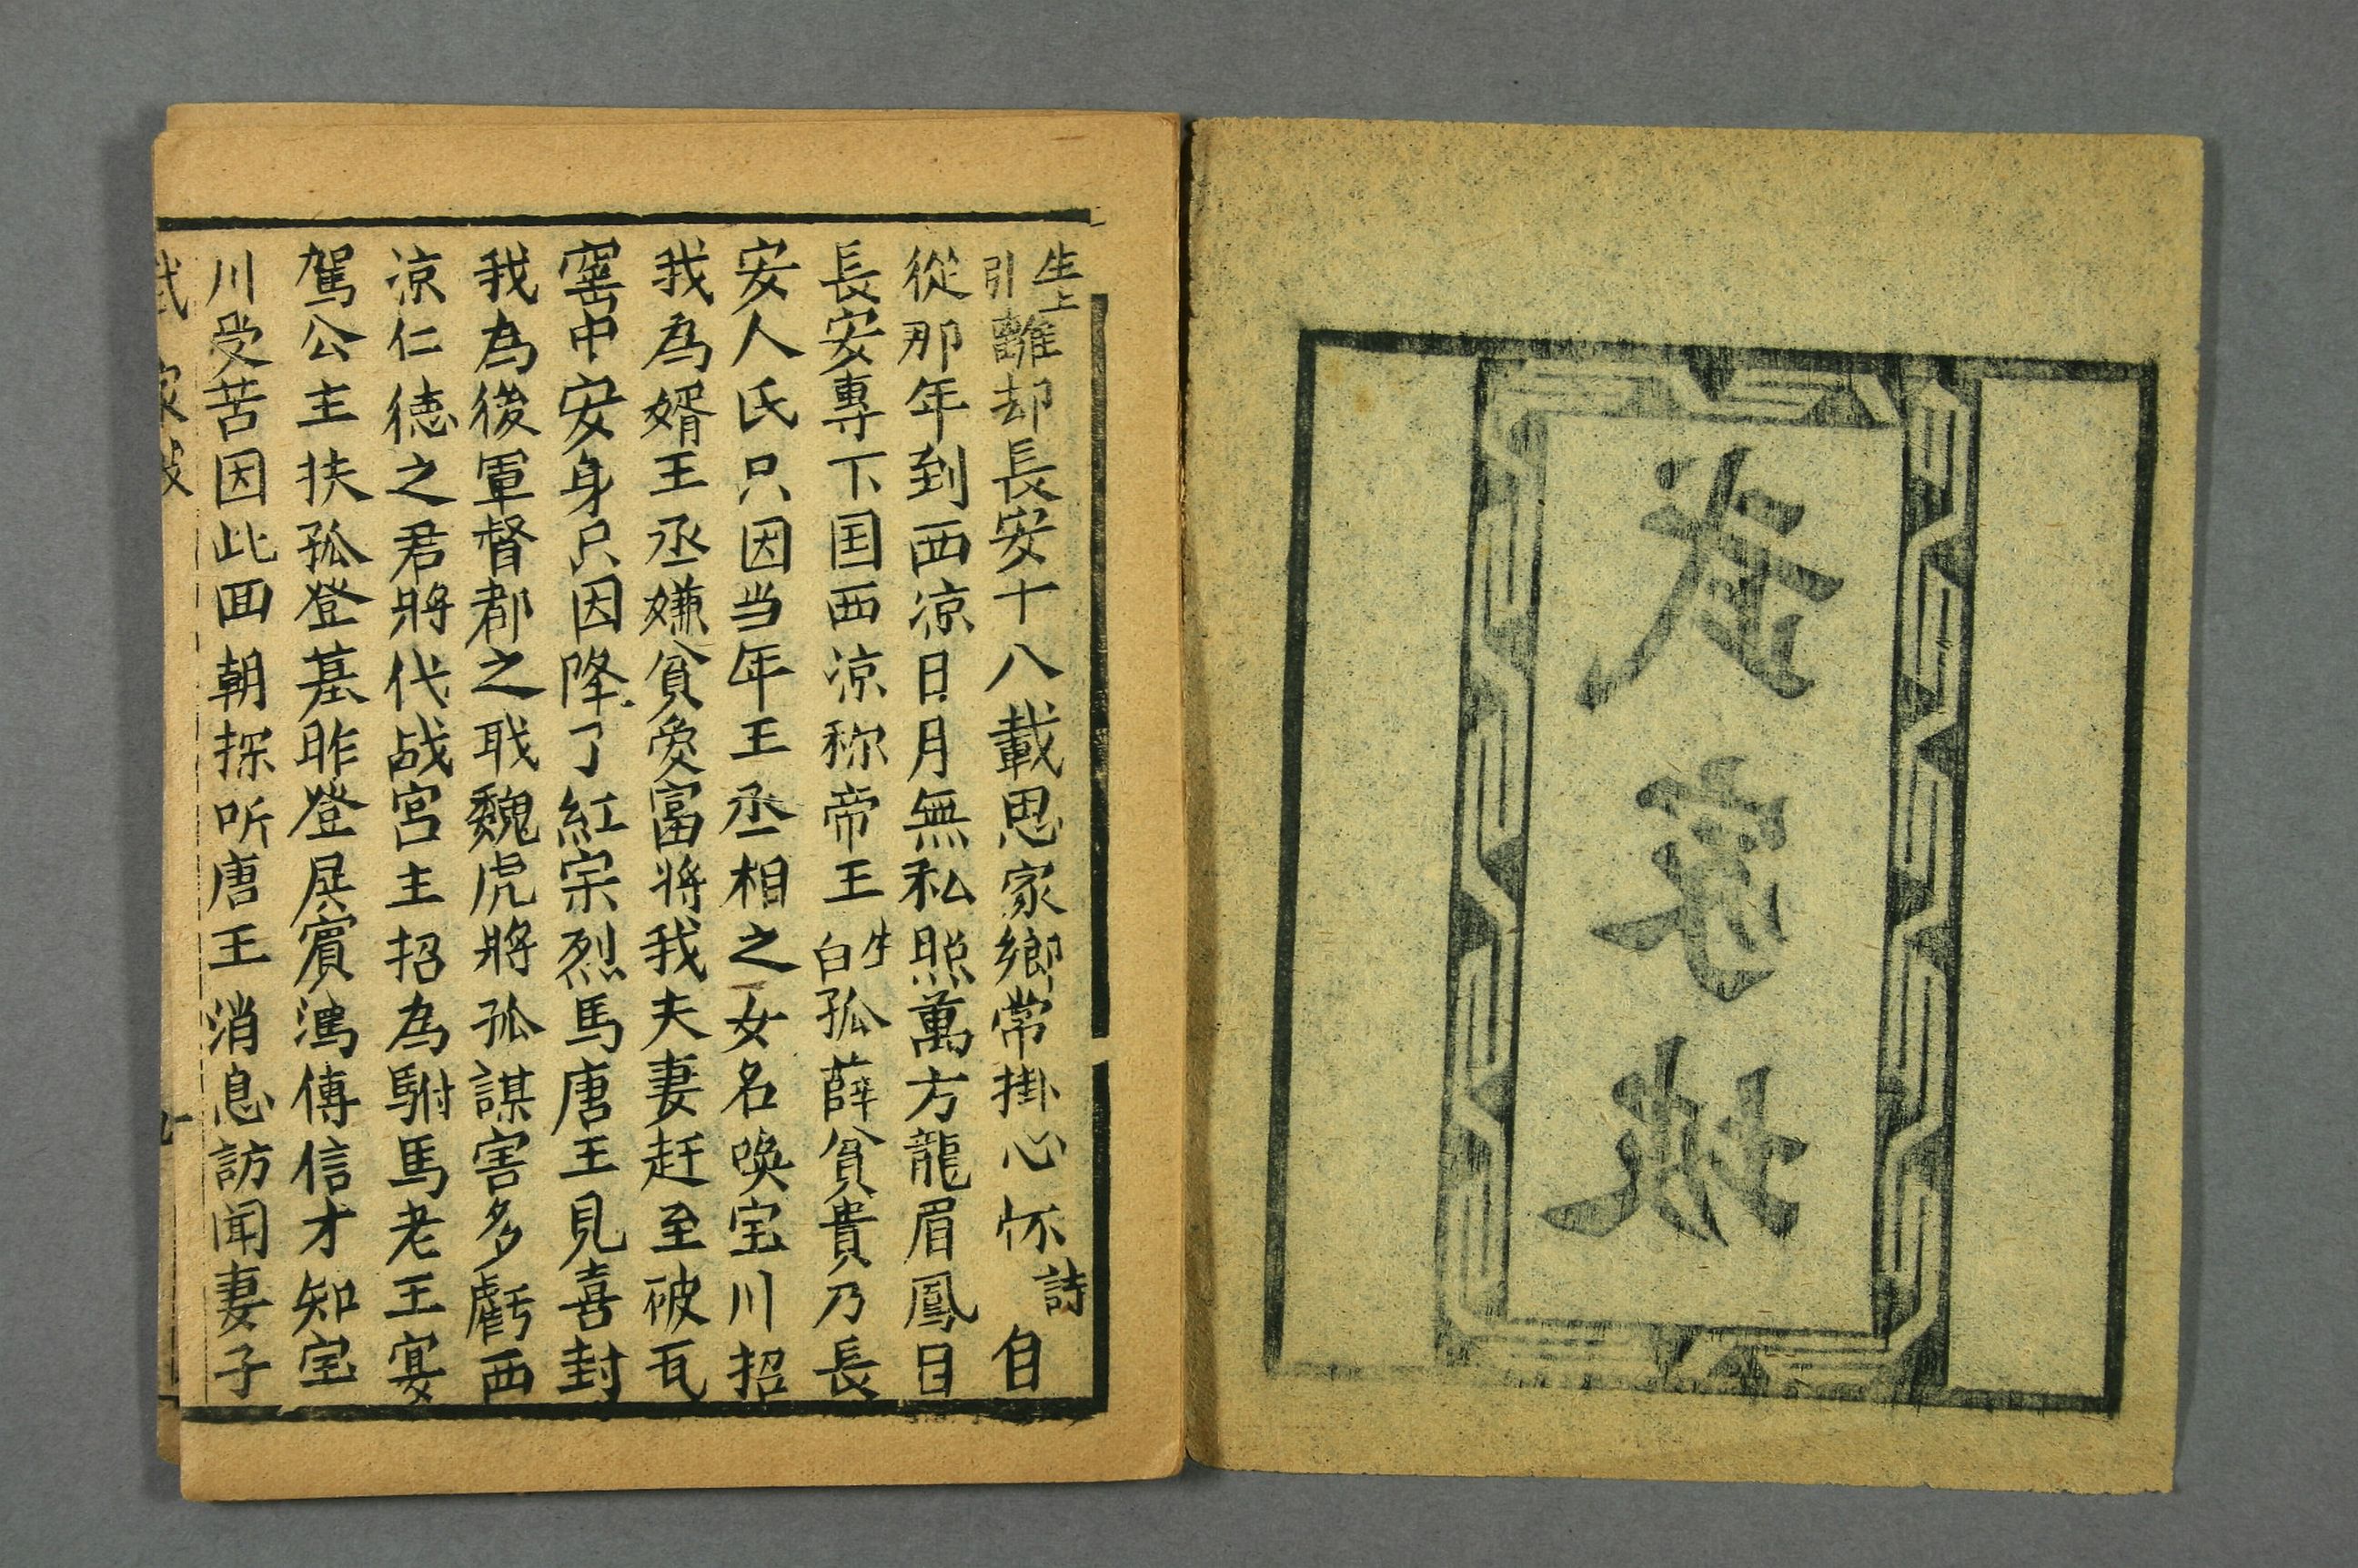 武家坡
生上引離却長安十八載思家鄉常掛心怀詩自
從那年到西凉日月無私照萬方龍眉鳳日
長安專下国西凉称帝王生白孤薛貧貴乃長
安人氏只因当年王丞相之女名喚宝川招
我為婿王丞嫌貧爱富将我夫妻赶至破瓦
窰中安身只因降了紅宗烈馬唐王見喜封
我為後軍督都之耺魏虎將孤謀害多虧西
凉仁德之君將代战宫主招為駙馬老王宴
駕公主扶孤登基昨登展賓鴻傳信才知宝
川受苦因此回朝探听唐王消息訪闻妻子
武家坡